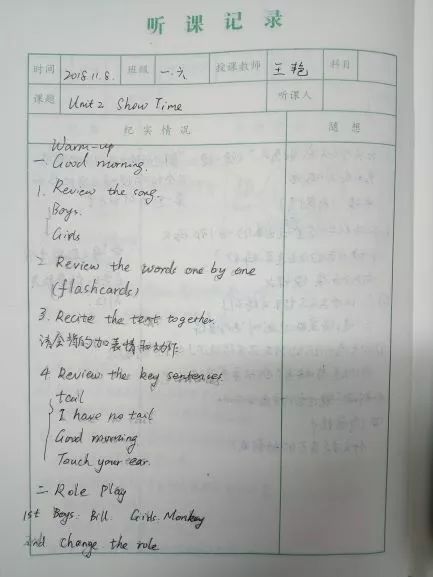 听课记录
时间 2018.11.8. 班级 一.六 授课教师 王艳 科目
课题 Unit 2 Show Time 听课人
纪实情况 随想
Warm-up
一. Good morning.
1. Review the song
Boys.
Girls
2. Review the words one by one
(flashcards)
3. Recite the text together.
请会背的加表情和动作
4. Review the key sentences
tail
I have no tail
Good morning
Touch your ear.
二. Role Play
1st Boys: Bill. Girls: Monkey
2nd change the role